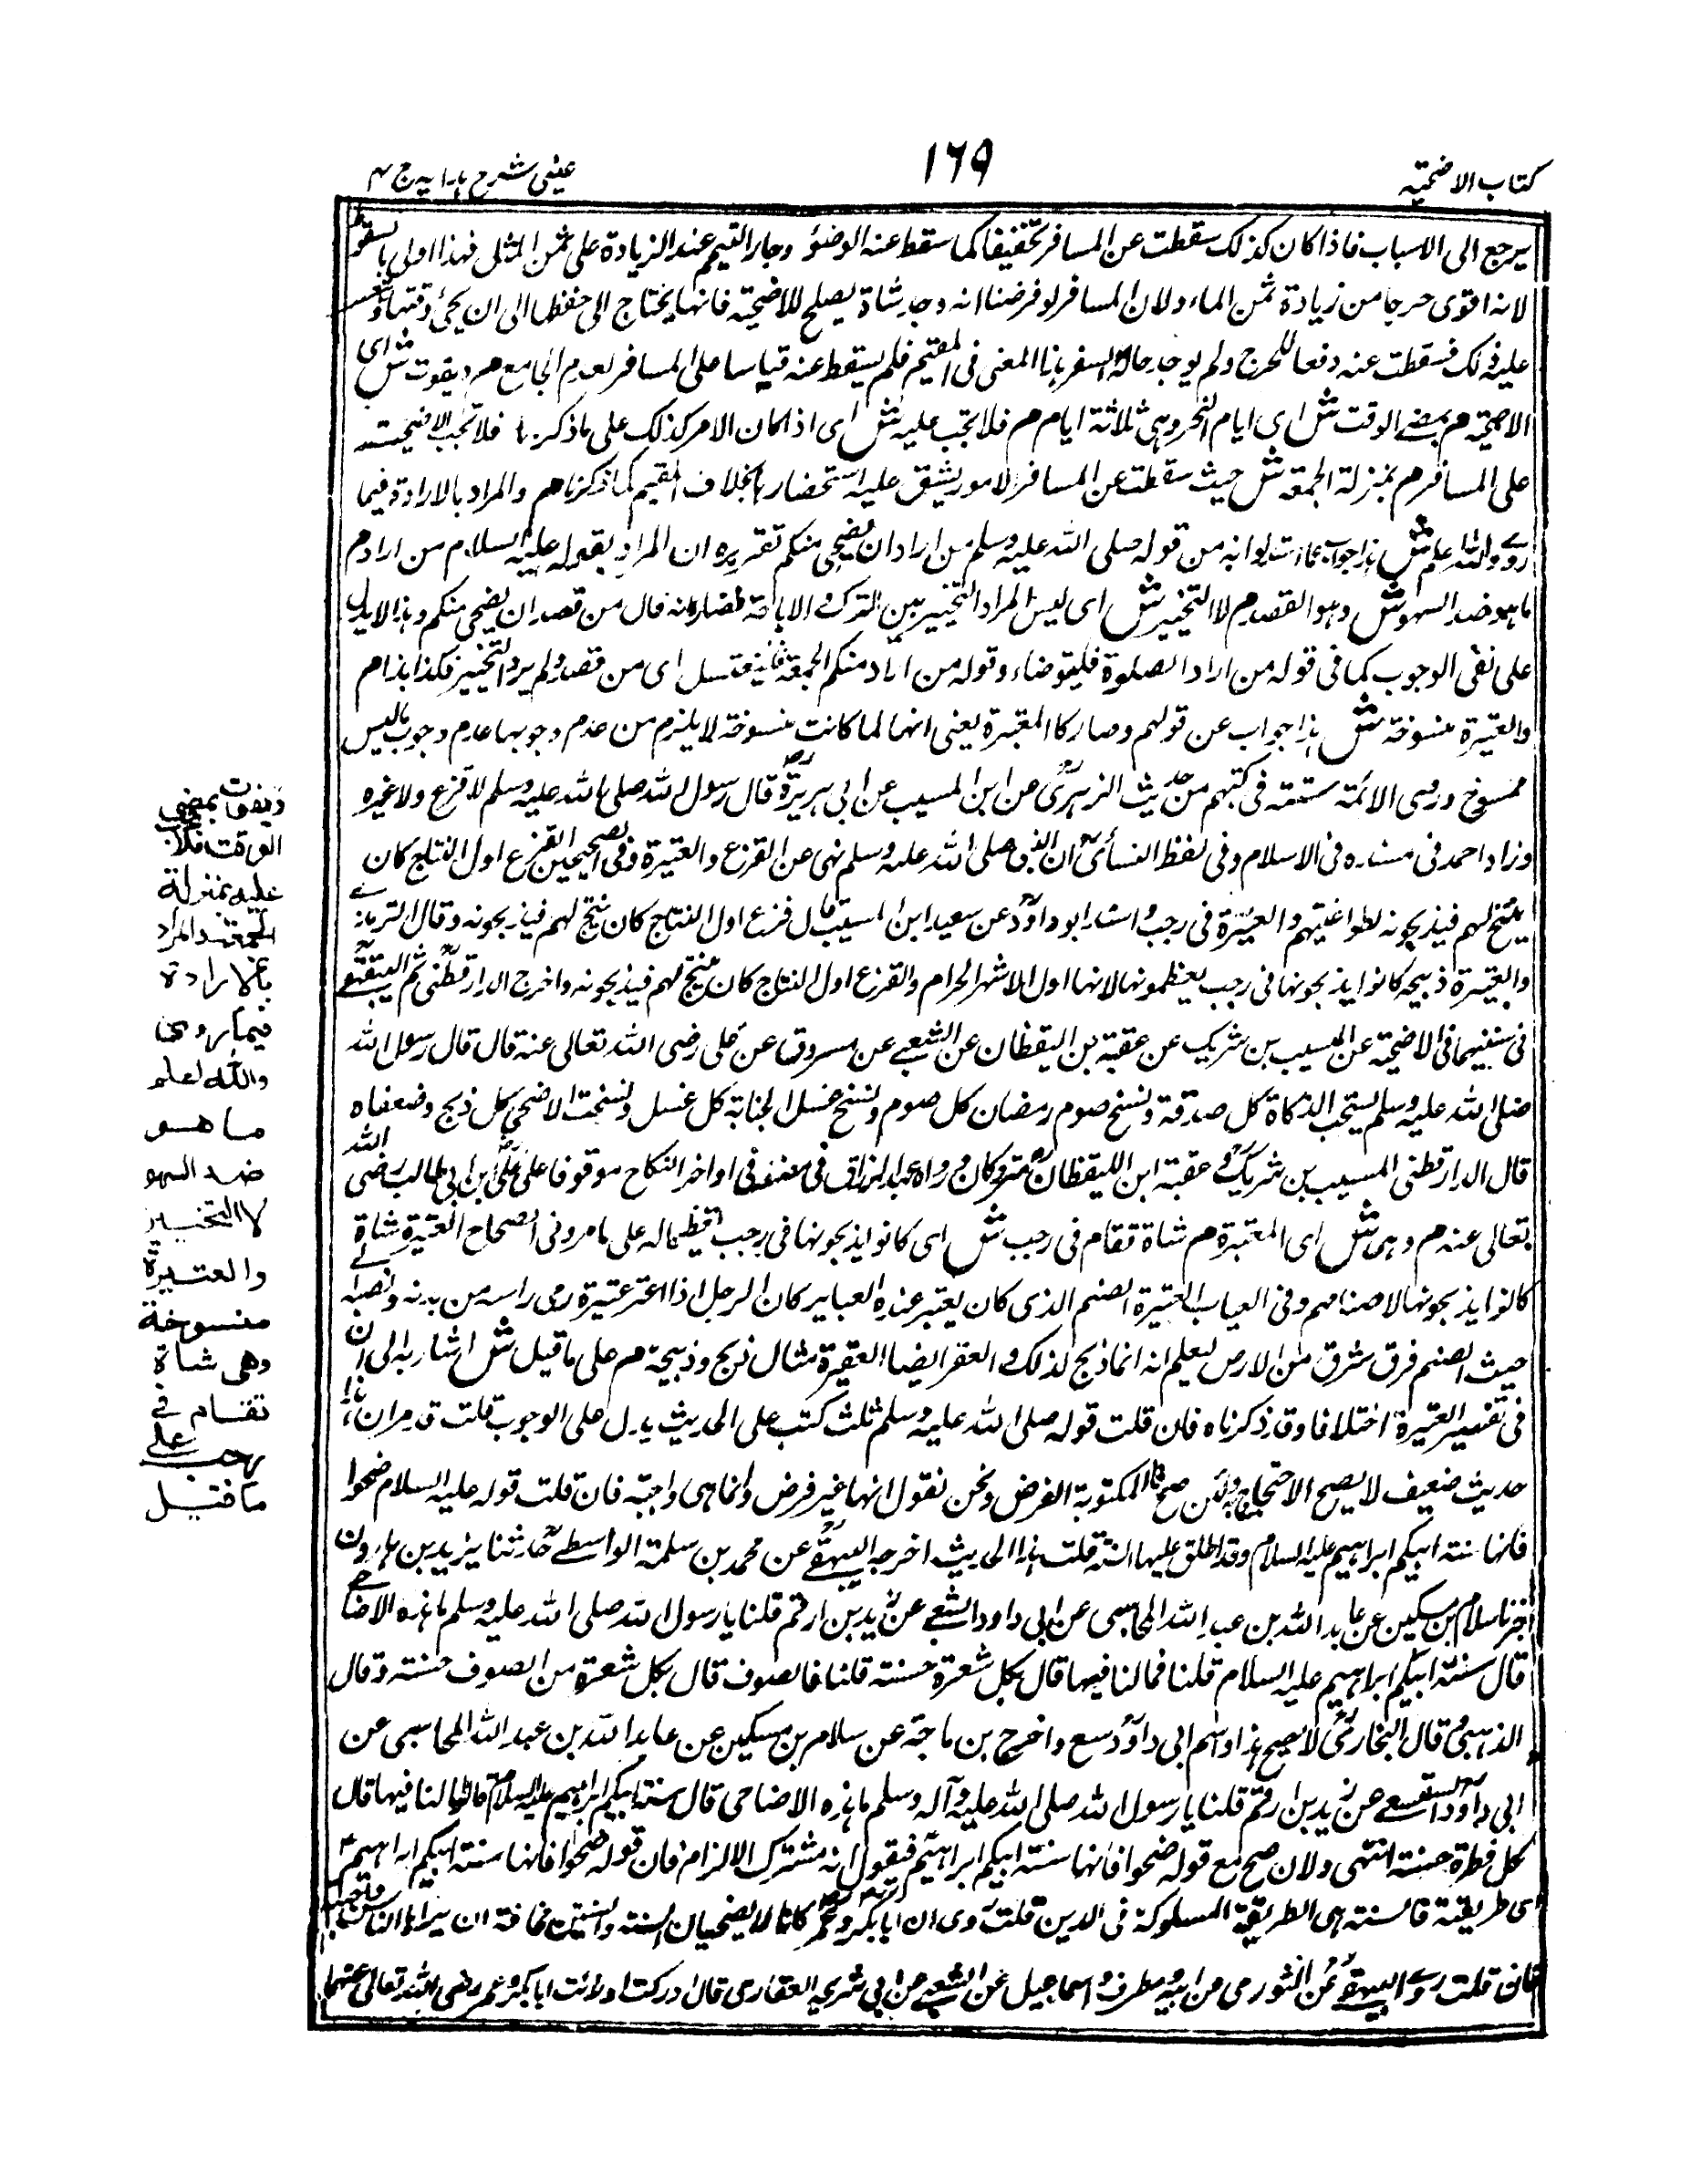 كتاب الاضحية
١٦٩
عينى شرح هدايه ج ٤
يرجع الى الاسباب فاذا كان كذلك سقطت عن المسافر تخفيفا كما سقط عنه الوضوء وجاز التيمم عند الزيادة على ثمن المثل فهذا اولى بالسقوط
لانه اقوى حرجا من زيادة ثمن الماء ولان المسافر لو فرضنا انه وجد شاة يصلح للاضحية فانها يحتاج الى حفظها الى ان يجئ وقتها
عليه ذلك فسقطت عنه دفعا للحرج ولم يوجد حالة السفر هذا المعنى فى المقيم فلم يسقط عنه قياسا على المسافر لعدم الجامع م ويفوت ش اى
الاضحية م بمضى الوقت ش اى ايام النحر وهى ثلاثة ايام م فلا تجب عليه ش اى اذا كان الامر كذلك على ما ذكرنا فلا تجب الاضحية
على المسافر م بمنزلة الجمعة ش حيث سقطت عن المسافر لامور يشق عليه استحضارها بخلاف المقيم كما ذكرنا م والمراد بالارادة فيما
روى والله اعلم ش هذا جواب عما استدلوا به من قوله صلى الله عليه وسلم من اراد ان يضحى منكم تقريره ان المراد بقوله عليه السلام من اراد م
ما هو ضد السهو ش وهو القصد م لا التخيير ش اى ليس المراد التخيير بين الترك والاباحة فصار كانه قال من قصد ان يضحى منكم وهذا لا يدل
على نفى الوجوب كما فى قوله من اراد الصلوة فليتوضاء وقوله من اراد منكم الجمعة فليغتسل اى من قصد ولم يرد التخيير فكذا هذا م
والعتيرة منسوخة ش هذا جواب عن قولهم وصار كالعتيرة يعنى انها لما كانت منسوخة لا يلزم من عدم وجوبها عدم وجوب ما ليس
بمنسوخ وروى الائمة ستته فى كتبهم من حديث الزهرى عن ابن المسيب عن ابى هريرة قال رسول الله صلى الله عليه وسلم لا فرع ولا عتيرة
وزاد احمد فى مسنده فى الاسلام وفى لفظ النسائى ان النبى صلى الله عليه وسلم نهى عن الفرع والعتيرة وفى الصحيحين الفرع اول النتاج كان
ينتج لهم فيذبحونه لطواغيتهم والعتيرة فى رجب واسند ابو داود عن سعيد ابن المسيب قال فرع اول النتاج كان ينتج لهم فيذبحونه وقال الترمذى
والعتيرة ذبيحة كانوا يذبحونها فى رجب يعظمونها لانها اول الاشهر الحرام والفرع اول النتاج كان ينتج لهم فيذبحونه واخرج الدارقطنى ثم البيهقى
فى سننيهما فى الاضحية عن المسيب بن شريك عن عقبة بن اليقظان عن الشعبى عن مسروق عن على رضى الله تعالى عنه قال قال رسول الله
صلى الله عليه وسلم نسخت الزكاة كل صدقة ونسخ صوم رمضان كل صوم ونسخ غسل الجنابة كل غسل ونسخت الاضحى كل ذبح وضعفاه
قال الدارقطنى المسيب بن شريك و عقبة ابن اليقظان متروكان ورواه عبد الرزاق فى مصنفه فى اواخر النكاح موقوفا على على ابن ابى طالب رضى الله
تعالى عنه م وهى ش اى العتيرة م شاة تقام فى رجب ش اى كانوا يذبحونها فى رجب تعظيما له على ما مر وفى الصحاح العتيرة شاة
كانوا يذبحونها لاصنامهم وفى العباب العتيرة الصنم الذى كان يعتر عنده العتاير كان الرجل اذا اعتر عتيرة رمى راسه من بدنه ونصبه الى
حيث الصنم فرق شرق من الارض ليعلم انه انما ذبح لذلك و العتر ايضا العتيرة مثال ذبح وذبيحة م على ما قيل ش اشار به الى ان
فى تفسير العتيرة اختلافا وقد ذكرناه فان قلت قوله صلى الله عليه وسلم ثلث كتب على الحديث يدل على الوجوب قلت قد مر ان هذا
حديث ضعيف لا يصح الاحتجاج به ولئن صح فالمكتوبة الفرض ونحن نقول انها غير فرض وانما هى واجبة فان قلت قوله عليه السلام ضحوا
فانها سنة ابيكم ابراهيم عليه السلام وقد اطلق عليها السنة قلت هذا الحديث اخرجه البيهقى عن محمد بن سلمة الواسطى حدثنا يزيد بن هارون
اخبرنا سلام بن مسكين عن عايد الله بن عبد الله المجاشعى عن ابى داود الشعبى عن زيد بن ارقم قلنا يا رسول الله صلى الله عليه وسلم ما هذه الاضاحى
قال سنة ابيكم ابراهيم عليه السلام قلنا فما لنا فيها قال بكل شعرة حسنة قلنا فالصوف قال بكل شعرة من الصوف حسنة وقال
الذهبى قال البخارى لا يصح هذا واسم ابى داود نفيع واخرج بن ماجة عن سلام بن مسكين عن عايد الله بن عبد الله المجاشعى عن
ابى داود عن زيد بن ارقم قلنا يا رسول الله صلى الله عليه وآله وسلم ما هذه الاضاحى قال سنة ابيكم ابراهيم عليه السلام قالوا ما لنا فيها قال
بكل قطرة حسنة انتهى ولان صح مع قوله ضحوا فانها سنة ابيكم ابراهيم فنقول انه مشترك الالزام فان قوله ضحوا فانها سنة ابيكم ابراهيم
اى طريقته فالسنة هى الطريقة المسلوكة فى الدين قلت روى ان ابا بكر وعمر كانا لا يضحيان السنة والسنتين مخافة ان يراها الناس واجبة
فان قلت روى البيهقى عن الثورى عن ابيه ومطرف واسماعيل عن الشعبى عن ابى شريحة الغفارى قال ادركت او رأيت ابا بكر وعمر رضى الله تعالى عنهما
ويفوت بمضى
الوقت فلا تجب
عليه بمنزلة
الجمعة والمراد
بالارادة
فيما روينا
والله اعلم
ما هو
ضد السهو
لا التخيير
والعتيرة
منسوخة
وهى شاة
تقام فى
رجب على
ما قيل